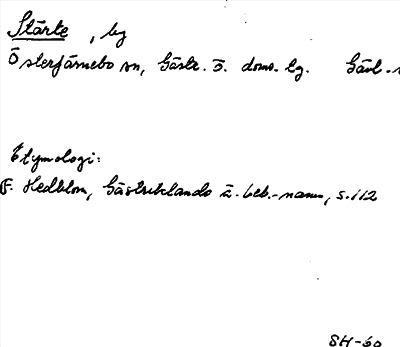 Stärte, by
Österfärnebo sn, Gästr. ö. doms. lg. Gävl.
Etymologi:
F. Hedblom, Gästriklands ä. beb.-namn, s. 112
SH-60